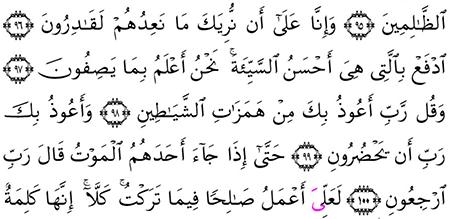 ٱلظَّـٰلِمِينَ ﴿٩٥﴾ وَإِنَّا عَلَىٰٓ أَن نُّرِيَكَ مَا نَعِدُهُمْ لَقَـٰدِرُونَ ﴿٩٦﴾
ٱدْفَعْ بِٱلَّتِى هِىَ أَحْسَنُ ٱلسَّيِّئَةَ ۚ نَحْنُ أَعْلَمُ بِمَا يَصِفُونَ ﴿٩٧﴾
وَقُل رَّبِّ أَعُوذُ بِكَ مِنْ هَمَزَٰتِ ٱلشَّيَـٰطِينِ ﴿٩٨﴾ وَأَعُوذُ بِكَ
رَبِّ أَن يَحْضُرُونِ ﴿٩٩﴾ حَتَّىٰٓ إِذَا جَآءَ أَحَدَهُمُ ٱلْمَوْتُ قَالَ رَبِّ
ٱرْجِعُونِ ﴿١٠٠﴾ لَعَلِّىَ أَعْمَلُ صَـٰلِحًا فِيمَا تَرَكْتُ ۚ كَلَّآ ۚ إِنَّهَا كَلِمَةٌ